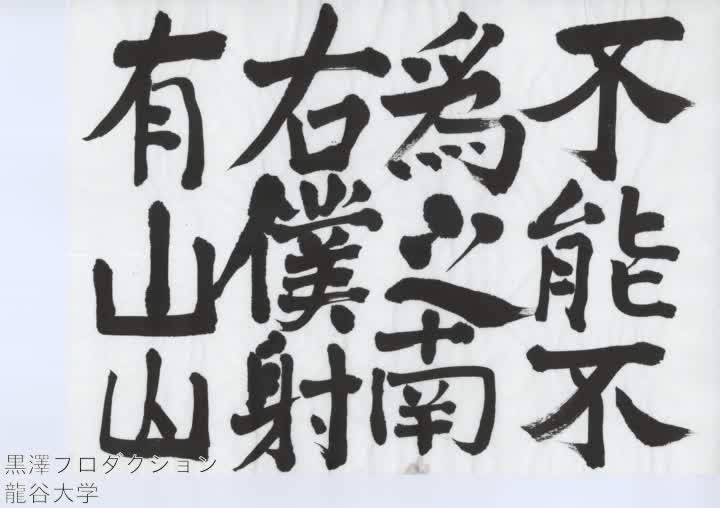 不能不
爲之南
右僕射
有山山
黒澤プロダクション
龍谷大学